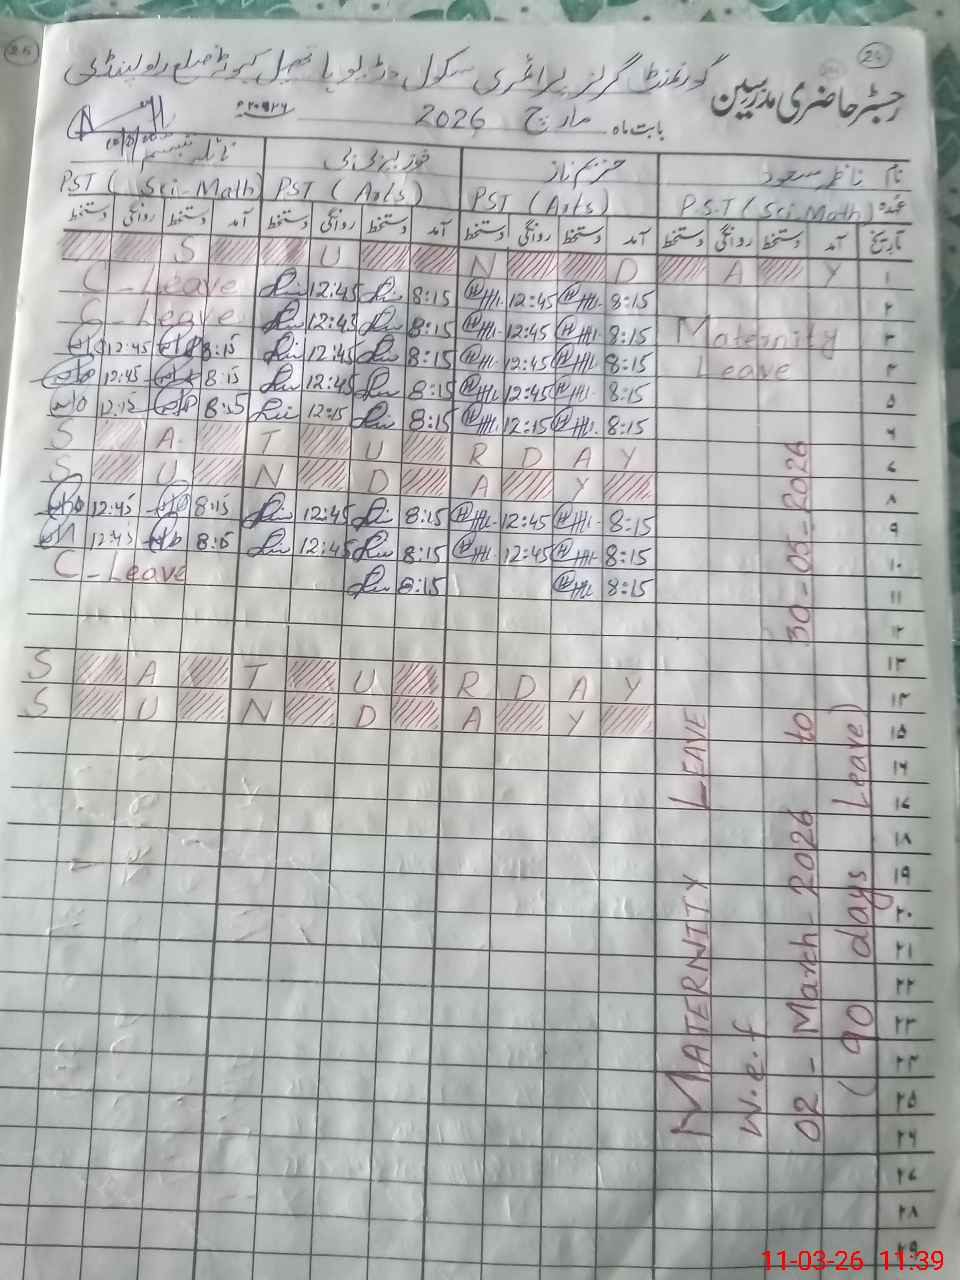 24
26
گورنمنٹ گرلز پرائمری سکول
رجسٹر حاضری مدرسین
بابت ماہ مارچ 2026 ۲۰۲۶ء
نام
عہدہ P.S.T (Sci Math) PST (Arts) PST (Arts) PST (Sci-Math)
تاریخ آمد دستخط روانگی دستخط آمد دستخط روانگی دستخط آمد دستخط روانگی دستخط آمد دستخط روانگی دستخط
۱ S U N D A Y
۲ 8:15 12:45 8:15 12:45 C-Leave
۳ Maternity 8:15 12:45 8:15 12:45 C-Leave
۴ Leave 8:15 12:45 8:15 12:45 8:15 12:45
۵ 8:15 12:45 8:15 12:45 8:15 12:45
۶ 8:15 12:15 8:15 12:15 8:15 12:15
۷ S A T U R D A Y
۸ S U N D A Y
۹ 8:15 12:45 8:15 12:45 8:15 12:45
۱۰ 8:15 12:45 8:15 12:45 8:15 12:45
۱۱ 8:15 8:15 C-Leave
۱۲
۱۳
۱۴ S A T U R D A Y
۱۵ S U N D A Y
۱۶
۱۷
۱۸
۱۹
۲۰
۲۱
۲۲
۲۳
۲۴
۲۵
۲۶
۲۷
۲۸
۲۹
MATERNITY LEAVE
w.e.f
02 - March - 2026 to 30-05-2026
(90 days Leave)
11-03-26 11:39